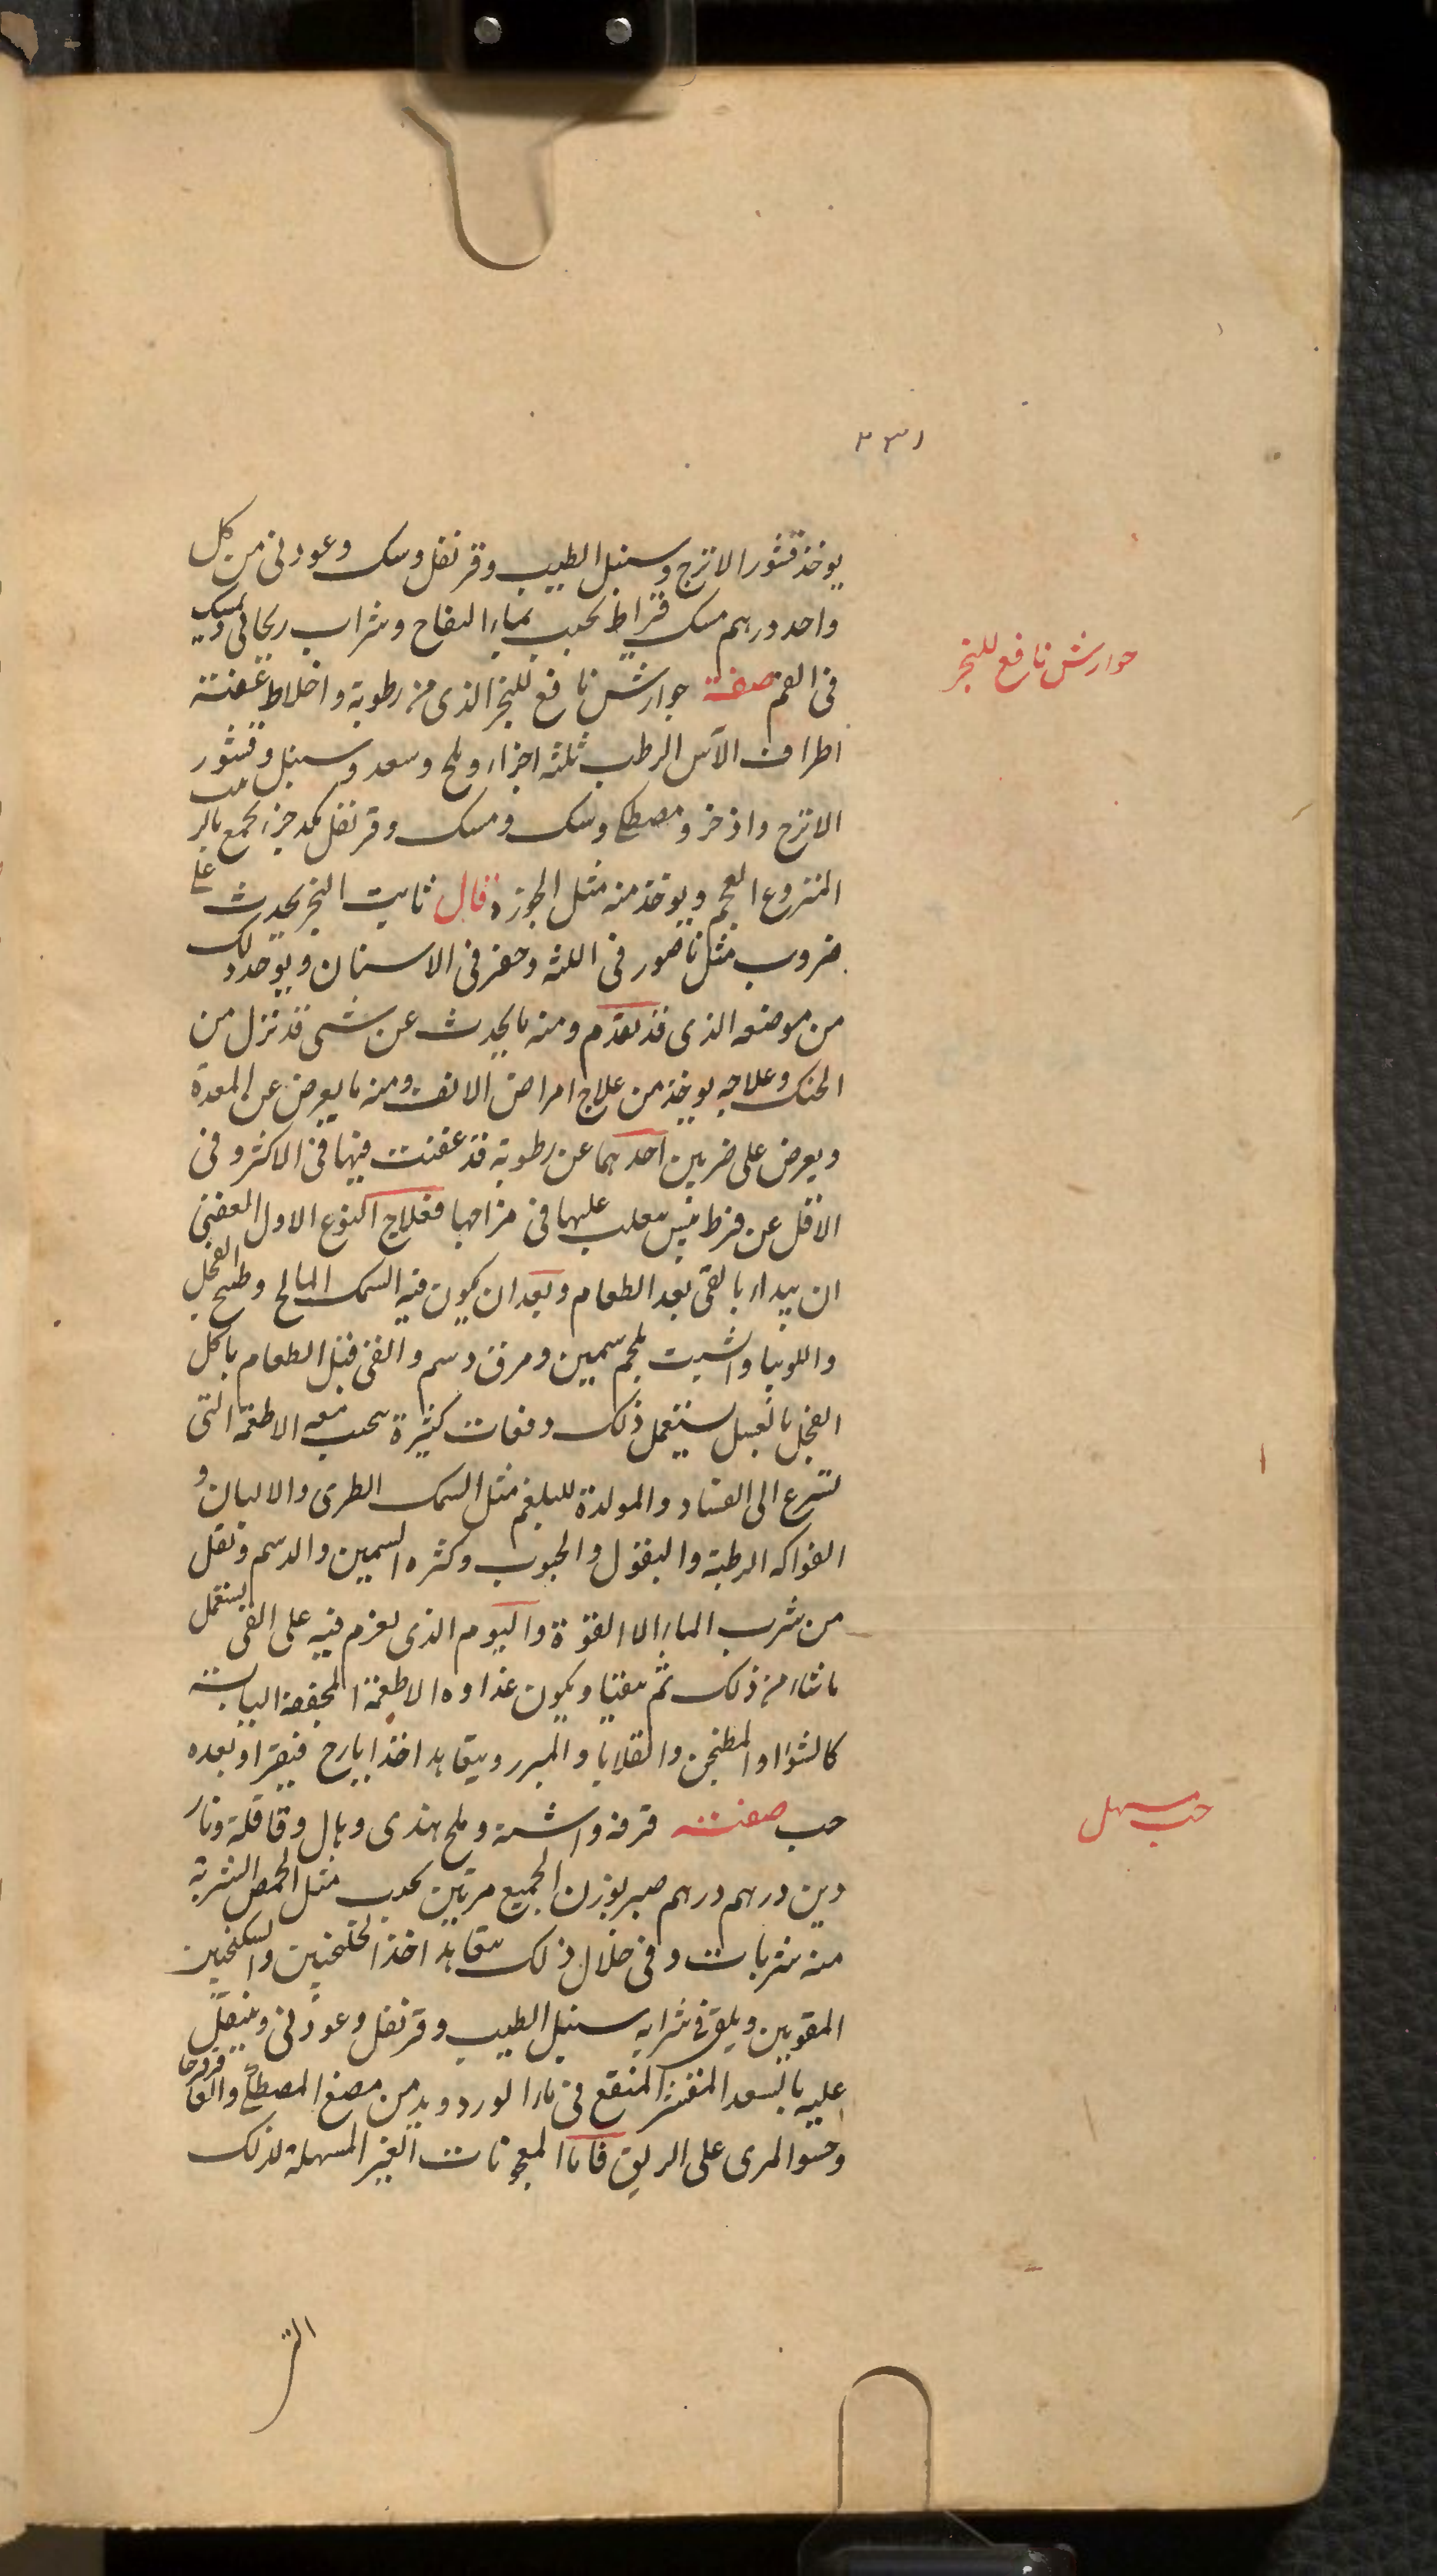 ٢٣١
يوخذ قشور الاترج وسنبل الطيب وقرنفل وسك وعود نى من كل
واحد درهم مسك قيراط يحبب بماء التفاح وشراب ريحانى ويمسك
فى الفم صفة جوارش نافع للبخر الذى من رطوبة واخلاط عفنة
جوارش نافع للبخر
اطراف الآس الرطب ثلثة اجزاء وملح وسعد وسنبل وقشور
الاترج واذخر ومصطكى وسك ومسك وقرنفل جزء يجمع بالزبيب
المنزوع العجم ويوخذ منه مثل الجوزة قال ثابت البخر يحدث على
ضروب مثل ناصور فى اللثه وحفر فى الاسنان ويوخذ ذلك
من موضعه الذى قد تقدم ومنه ما يحدث عن شى قد نزل من
الحنك وعلاجه يوخذ من علاج امراض الانف ومنه ما يعرض عن المعدة
ويعرض على ضربين احدهما عن رطوبة قد عفنت فيها فى الاكثر وفى
الاقل عن فرط يبس يغلب عليها فى مزاجها فعلاج النوع الاول العفنى
ان يبداء بالقى بعد الطعام وبعد ان يكون فيه السمك المالح وطبيخ الفجل
واللوبيا والشبت بلحم سمين ومرق دسم والقى قبل الطعام باكل
الفجل بالعسل يستعمل ذلك دفعات كثيرة يجنب معه الاطعمة التى
تسرع الى الفساد والمولدة للبلغم مثل السمك الطرى والالبان و
الفواكه الرطبة والبقول والحبوب وكثره السمين والدسم وتقل
من شرب الماء الا القوة واليوم الذى يعزم فيه على القى يستعمل
ماشاء من ذلك ثم يتقيا ويكون غذاوه الاطعمة المجففة اليابسة
كالشوا والمطجن والقلايا والمبزر ويتعاهد اخذ ايارج فيقرا وبعده
حب صفته قرفه واشنه وملح هندى وهال وقاقلة ونار
حب مسهل
دين درهم درهم صبر بوزن الجميع مرتين يحبب مثل الحمص الشربة
منه شربات وفى خلال ذلك يتعاهد اخذ الجلنجبين والسكنجبين
المقويين ويلقى فى شرابه سنبل الطيب وقرنفل وعود نى ويتنقل
عليه بالسعد المقشر المنقع فى ماء الورد ويدمن مضغ المصطكى والعاقرقرحا
وحسو المرى على الريق فاما المعجونات الغير المسهلة لذلك